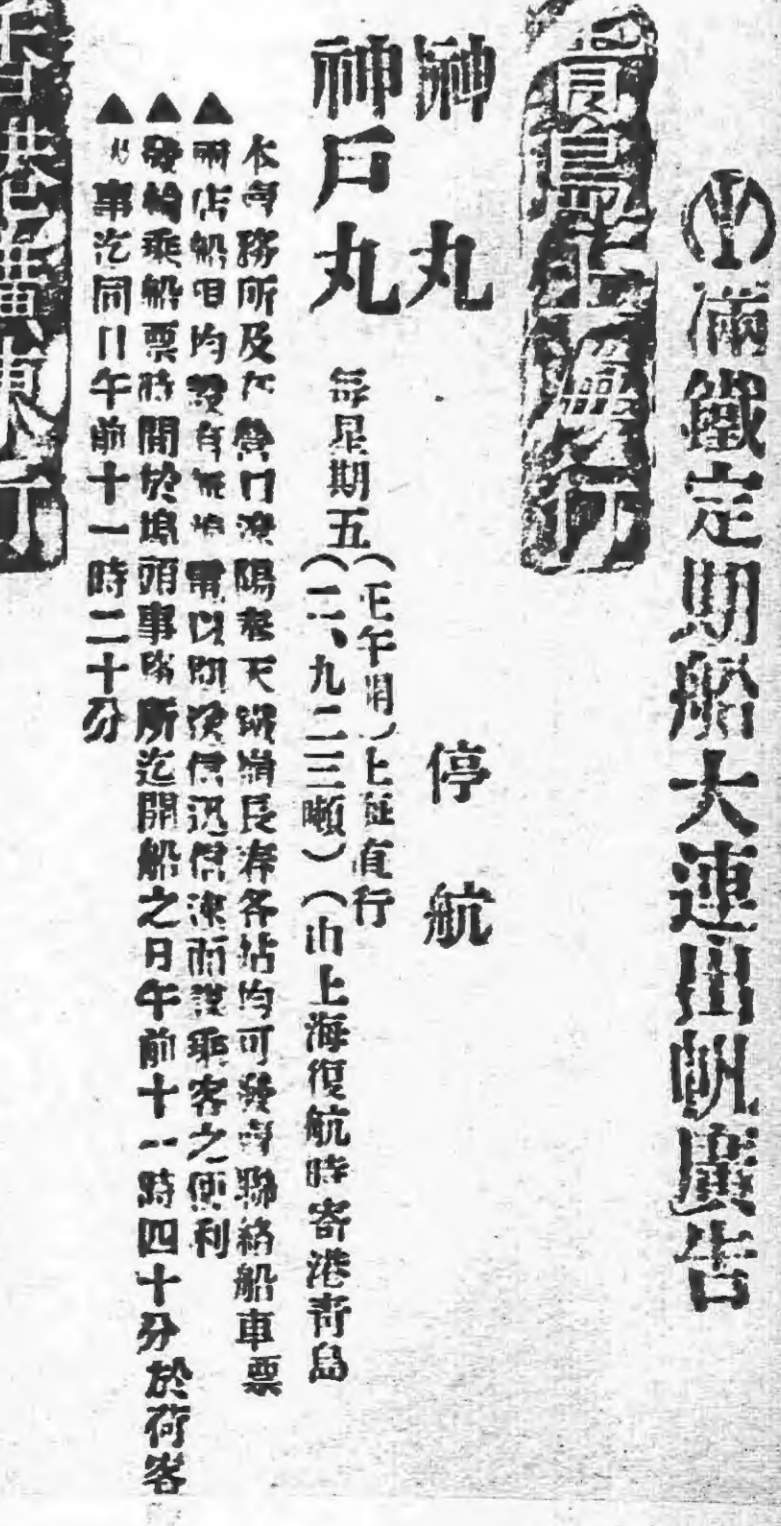 滿鐵定期船大連出帆廣告
青島上海行
榊丸 停航
神戶丸 每星期五(正午開)上海直行
(二、九二三噸)(由上海復航時寄港青島
本事務所及 營口遼陽奉天 長春各站均可發賣聯絡船車票
▲ 兩店船 均設有無 電以 乘客之便利
▲發輪乘船票時間於埠頭事務所迄開船之日午前十一時四十分於荷客
▲ 事迄同日午前十一時二十分
香港廣東行